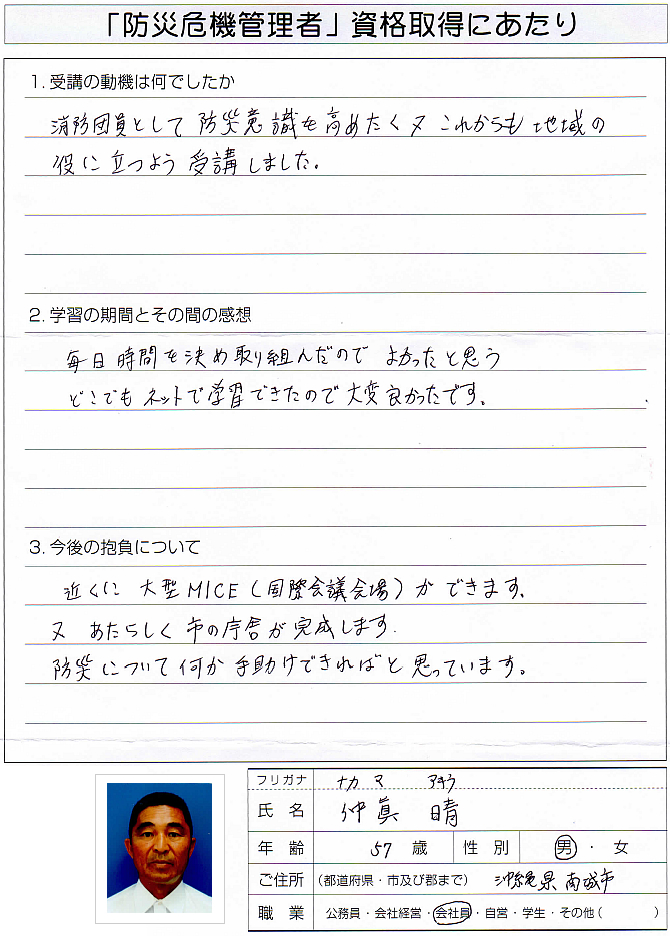 「防災危機管理者」資格取得にあたり
1. 受講の動機は何でしたか
消防団員として 防災意識を高めたく又 これからも 地域の
役に立つよう 受講しました。
2. 学習の期間とその間の感想
毎日時間を決め取り組んだので よかったと思う
どこでも ネットで学習できたので 大変良かったです。
3. 今後の抱負について
近くに 大型MICE(国際会議会場)が できます。
又 あたらしく 市の庁舎が完成します.
防災について何か手助けできればと思っています。
フリガナ ナカマ アキラ
氏名 仲眞 晴
年齢 57 歳 性別 男・女
ご住所 (都道府県・市及び郡まで) 沖縄県 南城市
職業 公務員・会社経営・会社員・自営・学生・その他( )